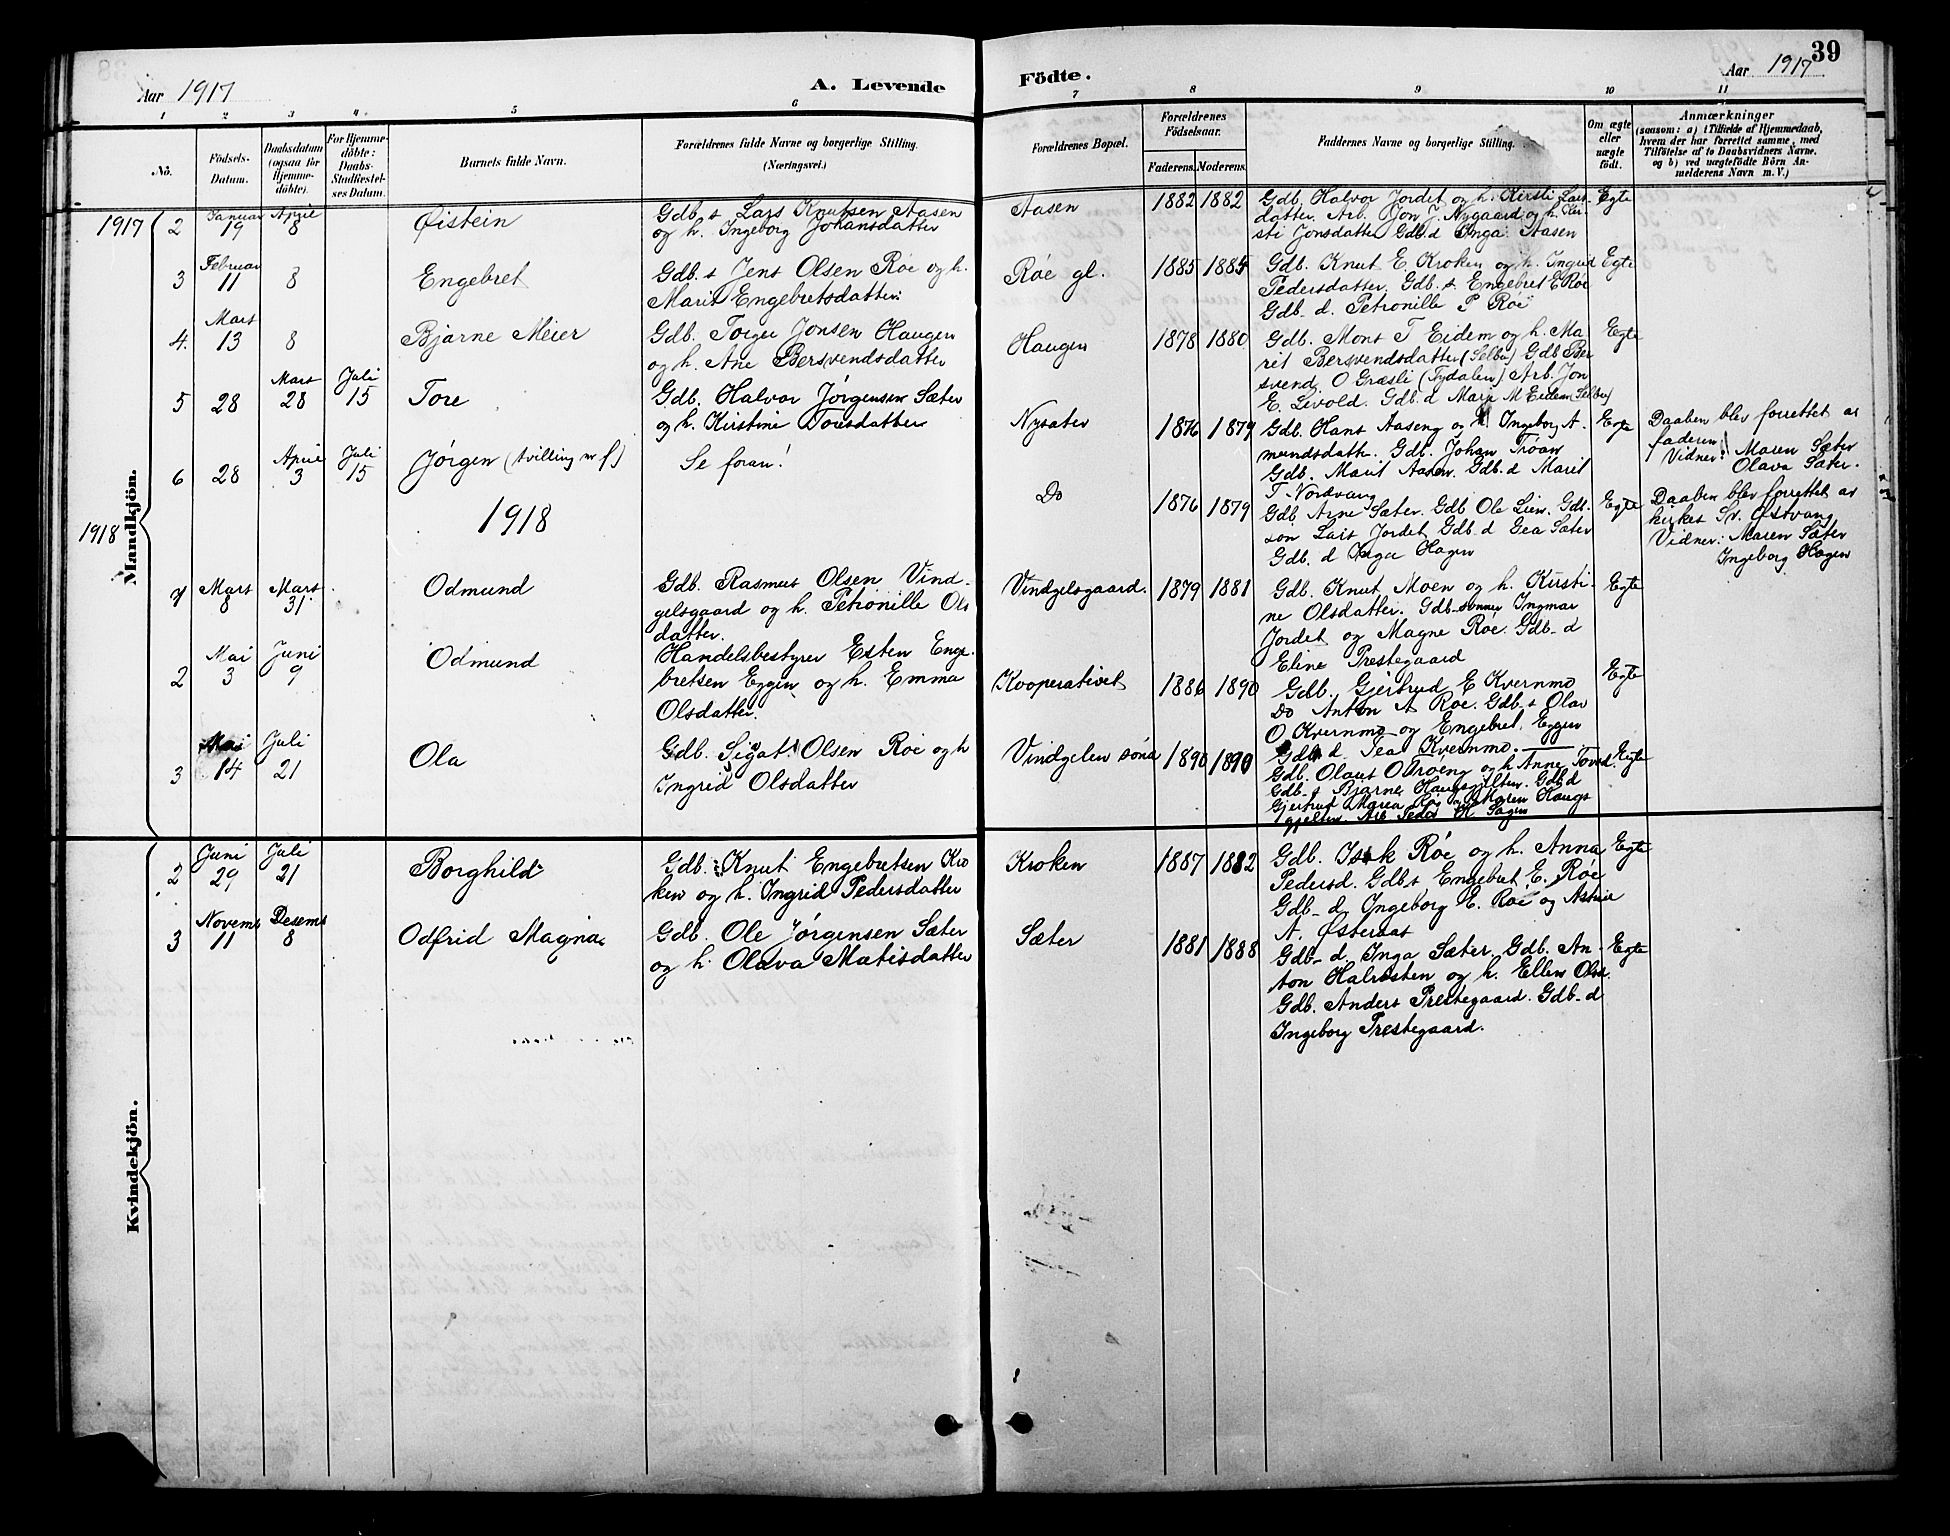 39
Aar 1917
A. Levende
Födte.
Aar 1917
1 2 3 4 5 6 7 8 9 10 11
No.
Födsels-
Datum.
Daabsdatum
(ogsaa for
Hjemme-
döbte).
For Hjemme-
döbte:
Daabs-
Stadfæstel-
ses Datum.
Barnets fulde Navn.
Forældrenes fulde Navne og borgerlige Stilling.
(Næringsvei.)
Forældrenes Bopæl.
Forældrenes
Födselsaar.
Faderens. Moderens.
Faddernes Navne og borgerlige Stilling.
Om ægte
eller
uægte
födt.
Anmærkninger
(saasom: a) i Tilfælde af Hjemmedaab,
hvem der har forrettet samme, med
Tilföielse af to Daabsvidners Navne,
og b) ved uægtefödte Börn An-
melderens Navn m. V.)
Mandkjön.
1917
2
Januar
19
April
8
Øistein
Gdb. s Lars Knutsen Aasen
og h. Ingeborg Johansdatter
Aasen
1882 1882
Gdb. Halvor Jordet og h. Kirsti Lars
datter. Arb. Jon J. Nygaard og h. Kir-
sti Jonsdatter Gdb. d Inga Aasen
Egte
3
Februar
11
8
Engebret
Gdb. s Jens Olsen Røe og h.
Marit Engebretsdatter
Røe gl.
1885 1885
Gdb. Knut E Kroken og h. Ingrid
Pedersdatter. Gdb. s Engebret E Røe
Gdb. d. Petronille P Røe
Egte
4.
Mars
13
8
Bjarne Meier
Gdb. Torger Jonsen Haugen
og h. Ane Bersvendsdatter
Haugen
1878 1880
Gdb. Mons T Eidem og h. Ma
rit Bersvendsdatter (Selbu) Gdb Ber
svend O Græsli (Tydalen) Arb. Jon
E. Livold. Gdb. d Mari M Eidem Selbu)
Egte
5
28
Mars
28
Juli
15
Tore
Gdb. Halvor Jørgensen Sæter
og h. Kirstine Toresdatter
Nysæter
1876 1879
Gdb. Hans Aaseng og h Ingeborg A-
mundsdatter. Gdb. Johan Trøan
Gdb. Marit Aasen. Gdb. d Marit
T. Nordvang
Egte
Daaben blev forrettet av
faderen.
Vidner: Maren Sæter
Olava Sæter.
6
28
April
3
Juli
15
Jørgen (tvilling m f.)
Se foran!
Do
1876 1879
Gdb. Arne Sæter. Gdb Ole Lien. Gdb.
søn Lars Jordet Gdb. d Gea Sæter
Gdb. d Inga Hagen
Egte
Daaben blev forrettet av
kirkes Sv. Østvang
Vidner: Maren Sæter
Ingeborg Hagen
1918
1918
1
Mars
8
Mars
31
Odmund
Gdb. Rasmus Olsen Vind-
gelsgaard og h. Petronille Ols
datter.
Vindgelsgaard.
1879 1881
Gdb. Knut Moen og h. Kirsti-
ne Olsdatter. Gdb-sønner Ingmar
Jordet og Magne Røe. Gdb-d
Eline Prestegaard
Egte
2
Mai
3
Juni
9
Odmund
Handelsbestyrer Esten Enge-
bretsen Eggen og h. Emma
Olsdatter.
Kooperativet
1886 1890
Gdb. Gjertrud E Kvernmo
Do Anton A Roe. Gdb. s Olav
O Kvernmo og Engebret Eggen
Gdb. d. Tea Kvernmo.
Egte
3
Mai
14
Juli
21
Ola
Gdb. Sigat Olsen Røe og h
Ingrid Olsdatter
Vindgelen søna
1890 1890
Gdb. Olaus O Trøeng og h Anne Tored.
Gdb-s Bjarne Haugsgjelten. Gdb. d
Gjertrud Marea Røe og Maren Haugs
gjelten. Arb Peder H Sagen
Egte
Kvindekjön.
2
Juni
29
Juli
21
Borghild
Gdb. Knut Engebretsen Kro
ken og h. Ingrid Pedersdatter
Kroken
1887 1882
Gdb. Isak Røe og h. Anna
Pedersd. Gdb s Engebret E. Røe
Gdb-d. Ingeborg E. Røe og Astrid
A. Østeraas
Egte
3
Novemb
11
Desemb
8
Odfrid Magna
Gdb. Ole Jørgensen Sæter
og h. Olava Matisdatter
Sæter
1881 1888
Gdb-d. Inga Sæter. Gdb. An-
ton Halvosten og h. Ellen Olsd.
Gdb. Anders Prestegaard. Gdb-d
Ingeborg Prestegaard.
Egte